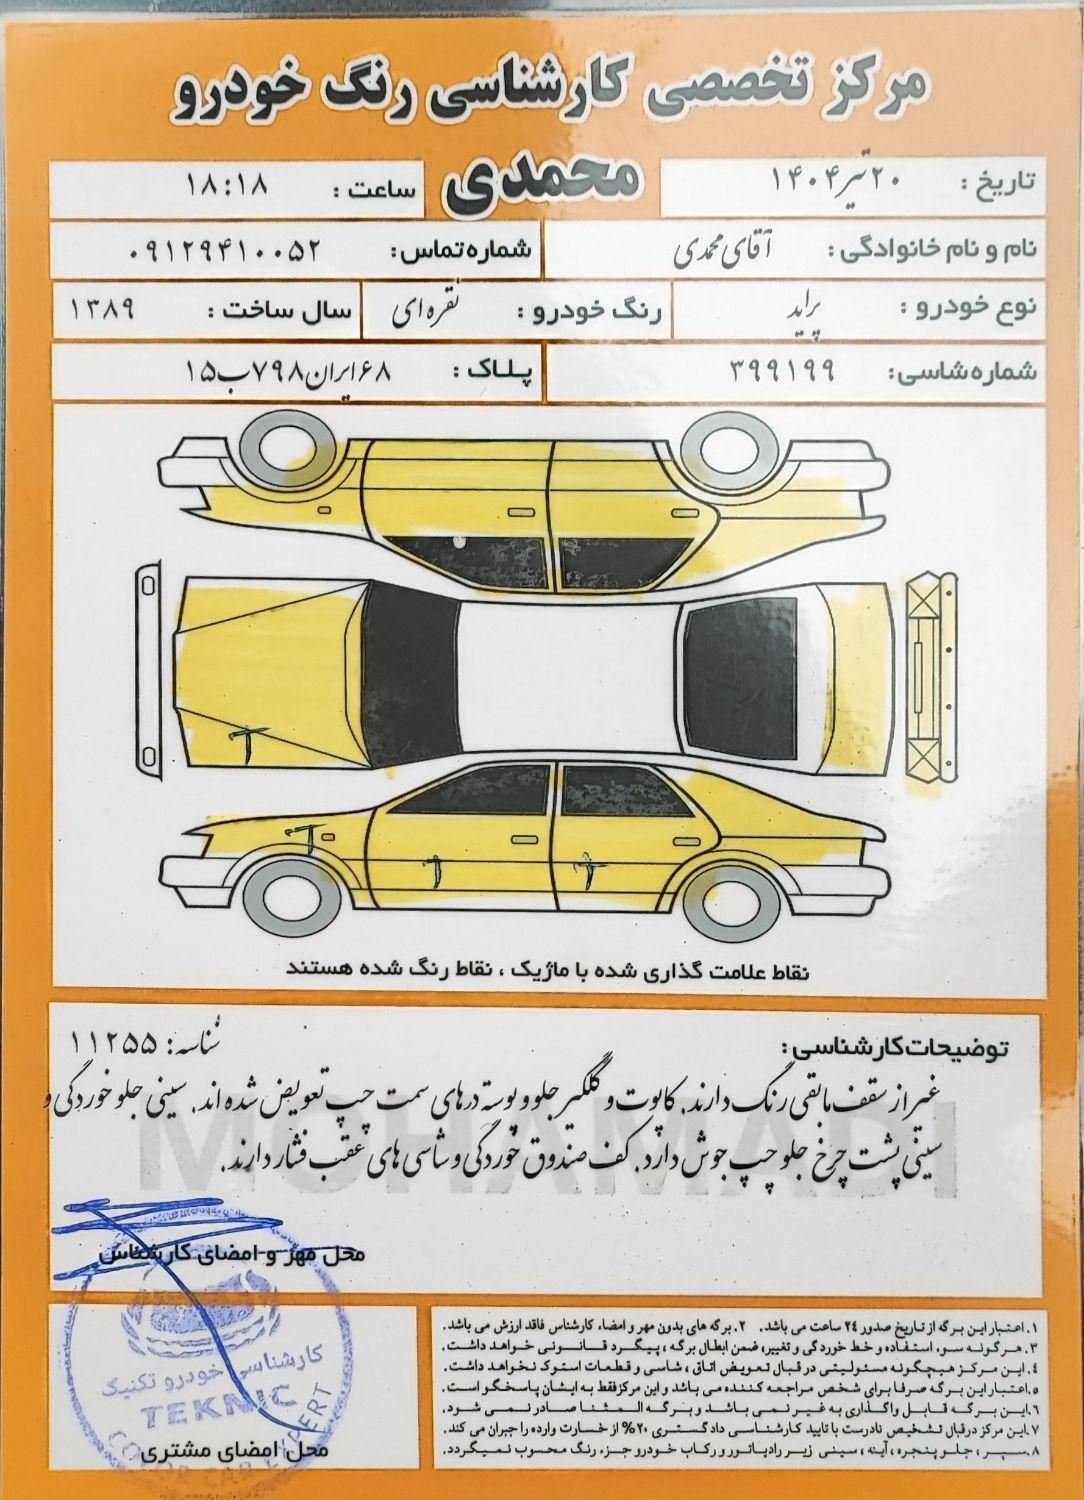 مرکز تخصصی کارشناسی رنگ خودرو
محمدی
تاریخ : ۲۰ تیر ۱۴۰۴
ساعت : ۱۸:۱۸
نام و نام خانوادگی : آقای محمدی
شماره تماس: ۰۹۱۲۹۴۱۰۰۵۲
نوع خودرو : پراید
رنگ خودرو : نقره ای
سال ساخت : ۱۳۸۹
شماره شاسی: ۳۹۹۱۹۹
پلاک : ۶۸ایران۷۹۸ب۱۵
T
T
T
T
نقاط علامت گذاری شده با ماژیک ، نقاط رنگ شده هستند
توضیحات کارشناسی :
شناسه: ۱۱۲۵۵
غیر از سقف مابقی رنگ دارند. کاپوت و گلگیر جلو و پوسته درهای سمت چپ تعویض شده اند. سینی جلو خوردگی و
سینی پشت چرخ جلو چپ جوش دارد. کف صندوق خوردگی و شاسی های عقب فشار دارند.
MOHAMADI
محل مهر و امضای کارشناس
کارشناسی خودرو تکنیک
TEKNIC
COLOR CAR EXPERT
محل امضای مشتری
۱. اعتبار این برگه از تاریخ صدور ۲۴ ساعت می باشد. ۲. برگه های بدون مهر و امضاء کارشناس فاقد ارزش می باشد.
۳. هرگونه سوء استفاده و خط خوردگی و تغییر، ضمن ابطال برگه ، پیگرد قانونی خواهد داشت.
۴. این مرکز هیچگونه مسئولیتی در قبال تعویض اتاق ، شاسی و قطعات استوک نخواهد داشت.
۵. اعتبار این برگه صرفا برای شخص مراجعه کننده می باشد و این مرکز فقط به ایشان پاسخگو است.
۶. این برگه قابل واگذاری به غیر نمی باشد و برگه المثنا صادر نمی شود.
۷. این مرکز در قبال تشخیص نادرست با تایید کارشناسی دادگستری ۲۰% از خسارت وارده را جبران می کند.
۸. سپر ، جلو پنجره ، آینه ، سینی زیر رادیاتور و رکاب خودرو جزء رنگ محسوب نمیگردد.